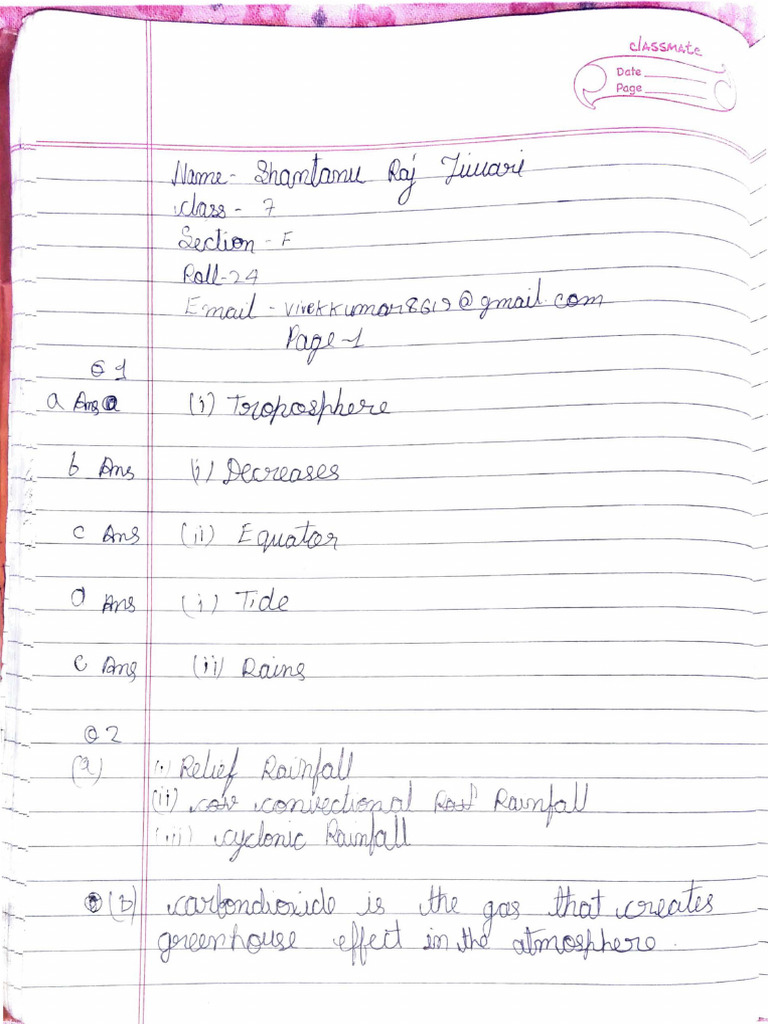 classmate
Date
Page
Name - Shantanu Raj Tiwari
class - 7
Section - F
Roll-24
Email - vivekkumar8619@gmail.com
Page-1
Q 1
a Ans (i) Troposphere
b Ans (i) Decreases
c Ans (ii) Equator
d Ans (i) Tide
e Ans (ii) Rains
Q 2
(a) (i) Relief Rainfall
(ii) convectional Rainfall
(iii) cyclonic Rainfall
(B) carbondioxide is the gas that creates
greenhouse effect in the atmosphere.